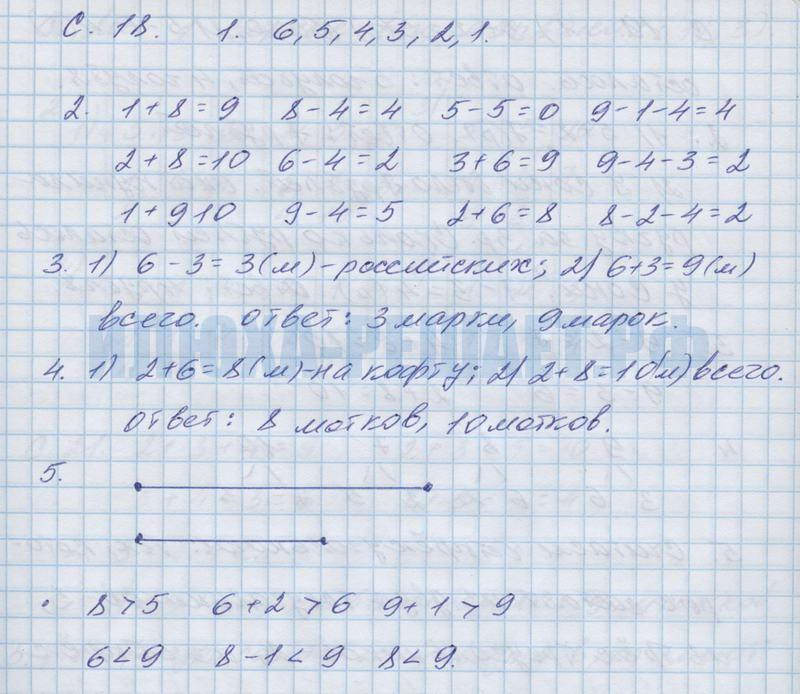 С. 18. 1. 6, 5, 4, 3, 2, 1.
2. 1+8=9 8-4=4 5-5=0 9-1-4=4
2+8=10 6-4=2 3+6=9 9-4-3=2
1+9 10 9-4=5 2+6=8 8-2-4=2
3. 1) 6-3=3(м)-российских; 2) 6+3=9(м)
всего. ответ: 3 марки, 9 марок.
ИДЮХА-РЕШАЕТ.РФ
4. 1) 2+6=8(м)-на кофту; 2) 2+8=10(м) всего.
ответ: 8 мотков, 10 мотков.
5.
• 8>5 6+2>6 9+1>9
6<9 8-1<9 8<9.